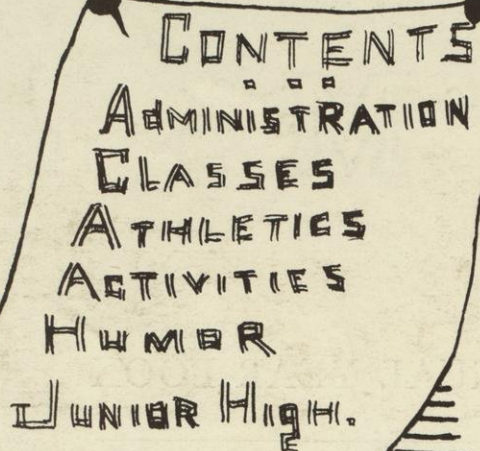 CONTENTS
ADMINISTRATION
CLASSES
ATHLETICS
ACTIVITIES
HUMOR
JUNIOR HIGH.